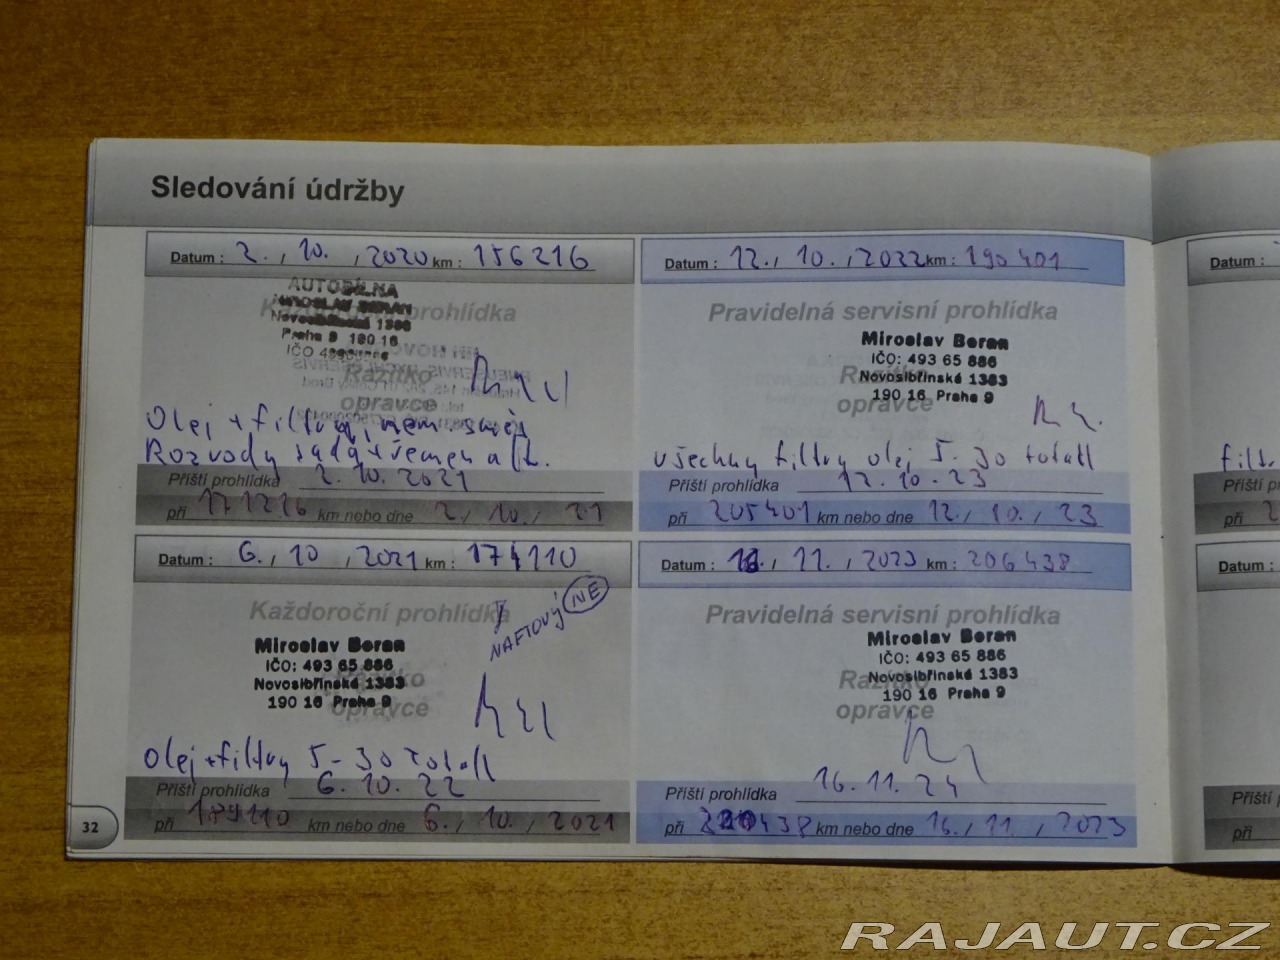 Sledování údržby
Datum : 2., 10., 2020 km : 156216
Každoroční prohlídka
AUTODÍLNA
MIROSLAV BERAN
Novosibřinská 1383
Praha 9 190 16
IČO
Razítko
opravce
Olej + filtry,
Rozvody sada +
Příští prohlídka 2. 10. 2021
při 171216 km nebo dne 2., 10., 21
Datum : 12., 10., 2022 km : 190401
Pravidelná servisní prohlídka
Miroslav Beran
IČO: 493 65 886
Novosibřinská 1383
190 16 Praha 9
Razítko
opravce
všechny filtry olej 5-30 totall
Příští prohlídka 12.10.23
při 205401 km nebo dne 12., 10., 23
Datum : 6., 10, 2021 km : 174110
Každoroční prohlídka
NAFTOVÝ NE
Miroslav Beran
IČO: 493 65 886
Novosibřinská 1383
190 16 Praha 9
Razítko
opravce
Olej + filtry 5-30 totall
Příští prohlídka 6. 10. 22
při 189110 km nebo dne 6., 10., 2021
Datum : 16., 11., 2023 km : 206438
Pravidelná servisní prohlídka
Miroslav Beran
IČO: 493 65 886
Novosibřinská 1383
190 16 Praha 9
Razítko
opravce
Příští prohlídka 16.11.24
při km nebo dne 16., 11., 2023
32
Datum :
filt
Příští p
při 2
Datum :
Příští
při
RAJAUT.CZ